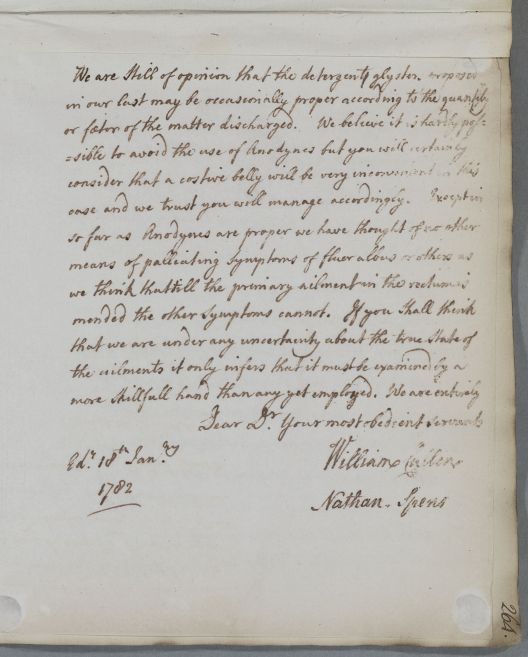 We are Still of opinion that the detergent glyster proposed
in our last may be occasionally proper according to the quantity
or fœtor of the matter discharged. We believe it is hardly pos=
=sible to avoid the use of Anodynes but you will certainly
consider that a costive belly will be very inconvenient in this
case and we trust you will manage accordingly. Except in
so far as Anodynes are proper we have thought of no other
means of palliating Symptoms of fluor albus or others as
we think that till the primary ailment in the rectum is
mended the other Symptoms cannot. If you Shall think
that we are under any uncertainty about the true State of
the ailments it only infers that it must be examined by a
more Skillfull hand than any yet employed. We are entirely
Dear Dr. Your most obedient Servants
Edr. 18th Janry William Cullen
1782
Nathan. Spens
264.